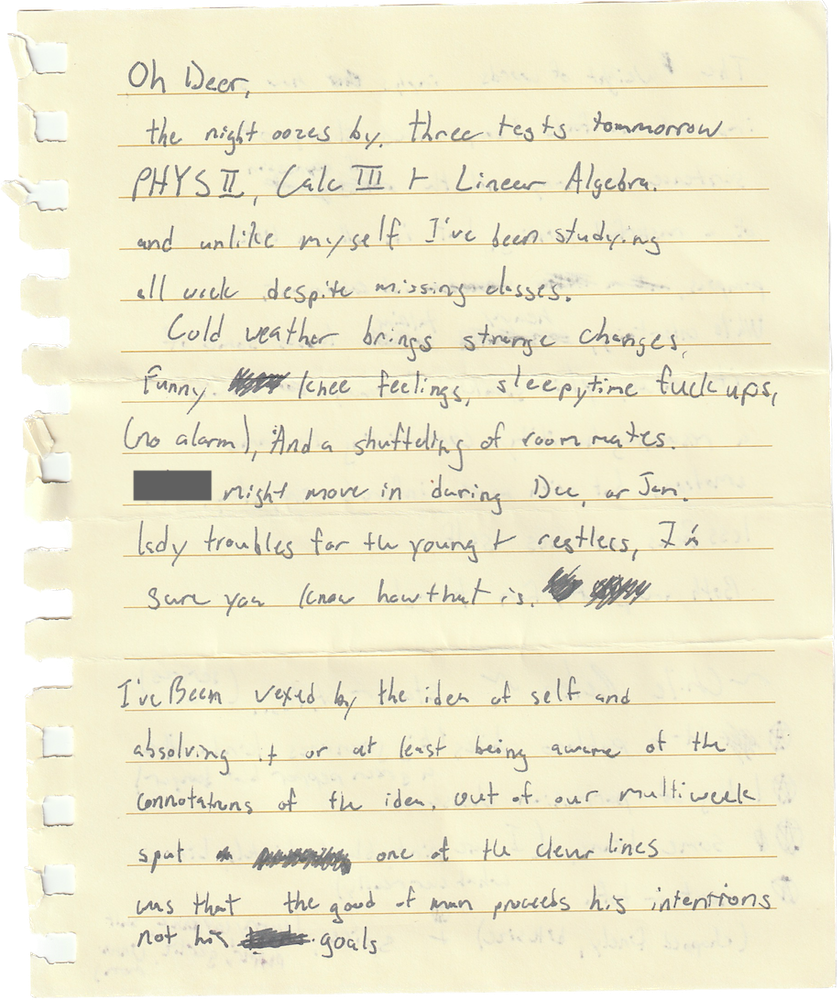 Oh Deer,
the night oozes by. three tests tommorrow
PHYS II, Calc III + Linear Algebra.
and unlike myself I've been studying
all week despite missing classes.
Cold weather brings strange changes,
Funny knee feelings, sleepytime fuck ups,
(no alarm), And a shuffeling of room mates.
might move in during Dec, or Jan.
lady troubles for the young + restless, I'm
sure you know how that is.
I've Been vexed by the idea of self and
absolving it or at least being aware of the
connotations of the idea. out of our multiweek
spat one of the clever lines
was that the good of man proceeds his intentions
not his goals